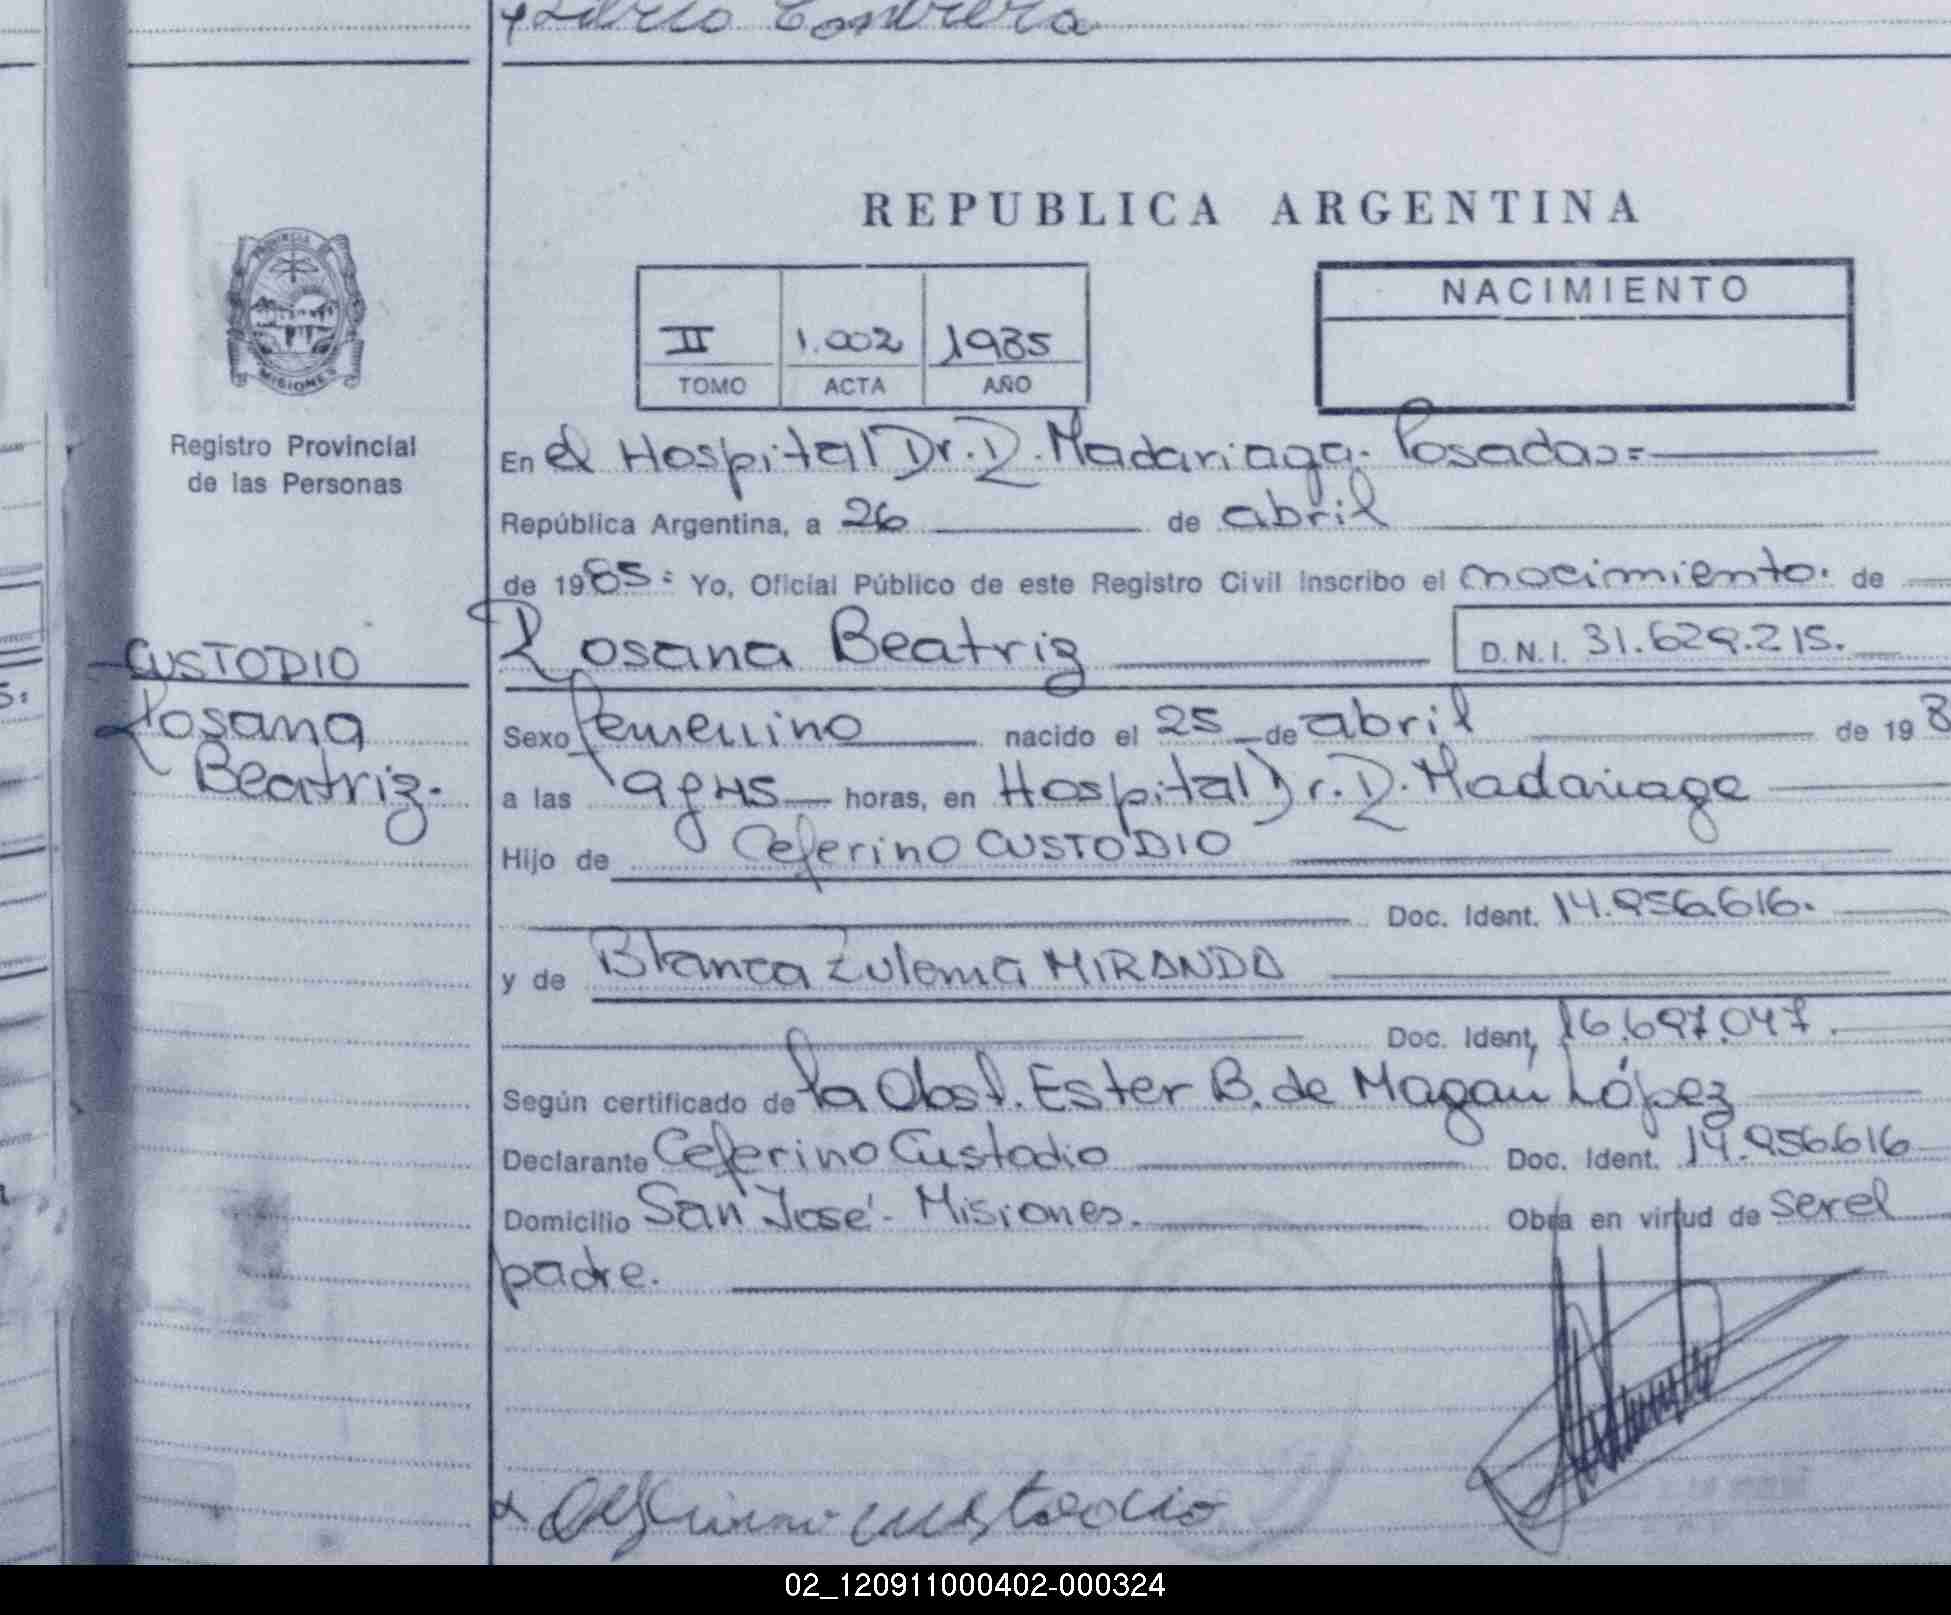 REPUBLICA ARGENTINA
PROVINCIA
MISIONES
Registro Provincial
de las Personas
CUSTODIO
Rosana
Beatriz.
II 1.002 1985
TOMO ACTA AÑO
NACIMIENTO
En el Hospital Dr. R. Madariaga. Posadas=
República Argentina, a 26 de abril
de 1985= Yo, Oficial Público de este Registro Civil Inscribo el nacimiento. de
Rosana Beatriz D.N.I. 31.629.215.
Sexo femenino nacido el 25 de abril de 198
a las horas, en Hospital Dr. R. Madariaga
Hijo de Ceferino CUSTODIO
Doc. Ident. 14.956.616.
y de Blanca Zulema MIRANDA
Doc. Ident. 16.697.047.
Según certificado de la Obst. Ester B. de Magán López
Declarante Ceferino Custodio Doc. Ident. 14.956.616
Domicilio San José - Misiones. Obra en virtud de ser el
padre.
custodio
02_120911000402-000324